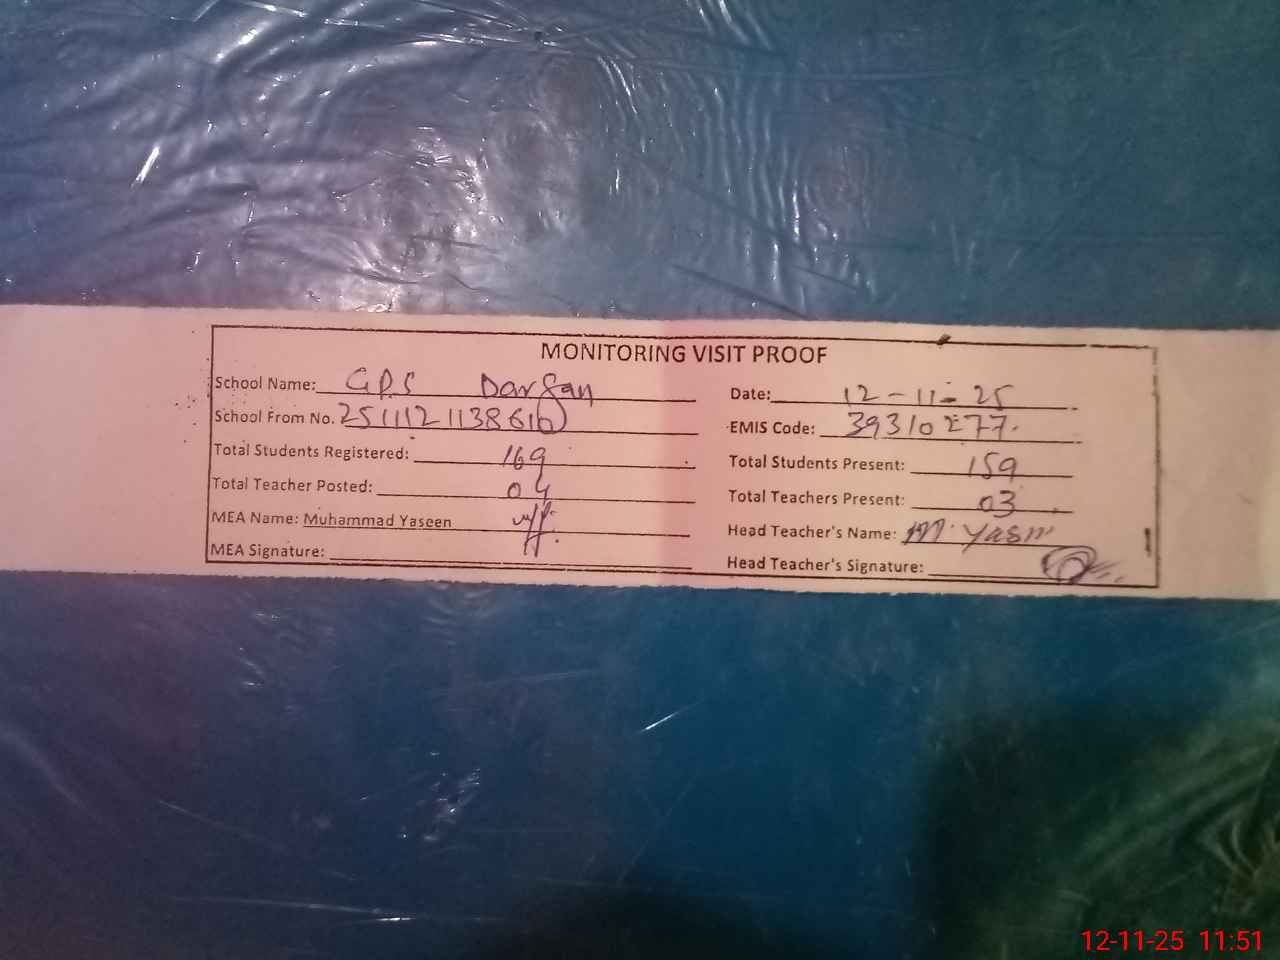 MONITORING VISIT PROOF
School Name: GPS Dargan
Date: 12-11-25
School From No.
EMIS Code:
Total Students Registered: 169
Total Students Present: 159
Total Teacher Posted: 04
Total Teachers Present: 03
MEA Name: Muhammad Yaseen
Head Teacher's Name: M. Yasin
MEA Signature:
Head Teacher's Signature:
12-11-25 11:51